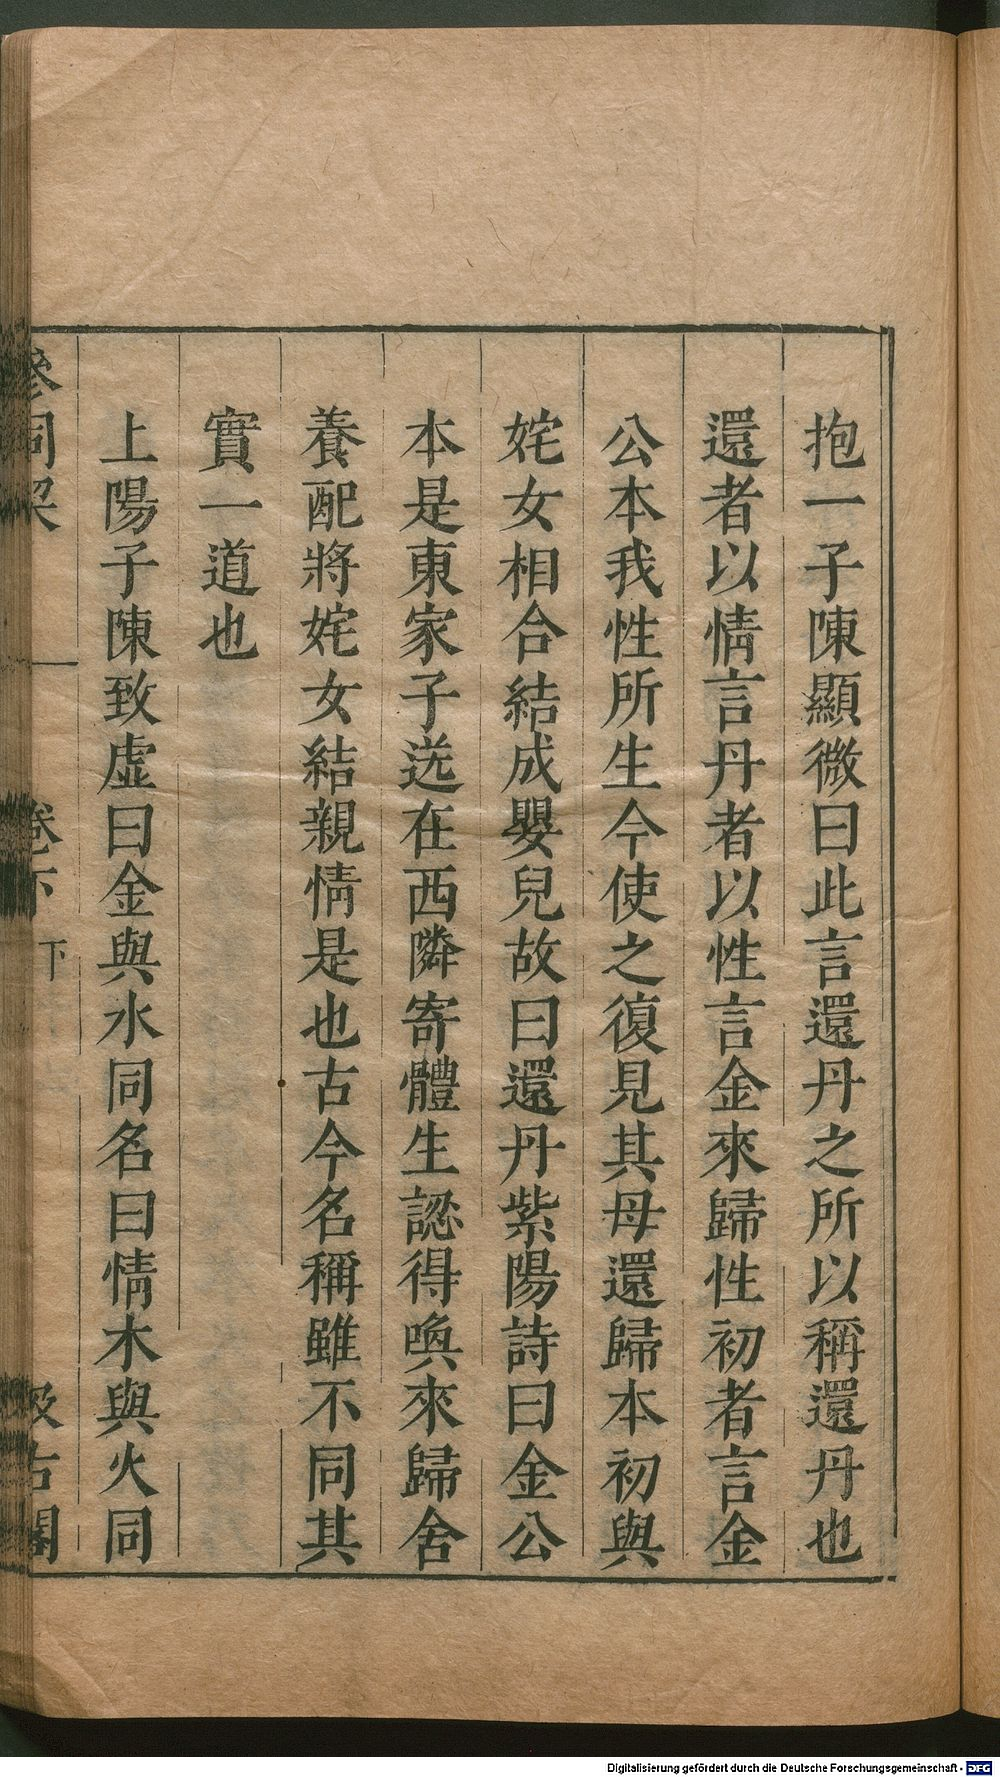 抱一子陳顯微曰此言還丹之所以稱還丹也
還者以情言丹者以性言金來歸性初者言金
公本我性所生今使之復見其母還歸本初與
姹女相合結成嬰兒故曰還丹紫陽詩曰金公
本是東家子送在西隣寄體生認得喚來歸舍
養配將姹女結親情是也古今名稱雖不同其
實一道也
上陽子陳致虛曰金與水同名曰情木與火同
參同契
卷下
下
汲古閣
Digitalisierung gefördert durch die Deutsche Forschungsgemeinschaft - DFG